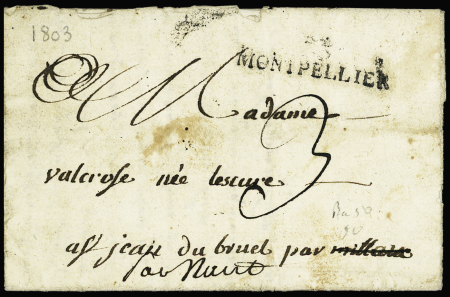 1803
MONTPELLIER
Madame
3
valcrose née lescure
a St jean du bruel par millau